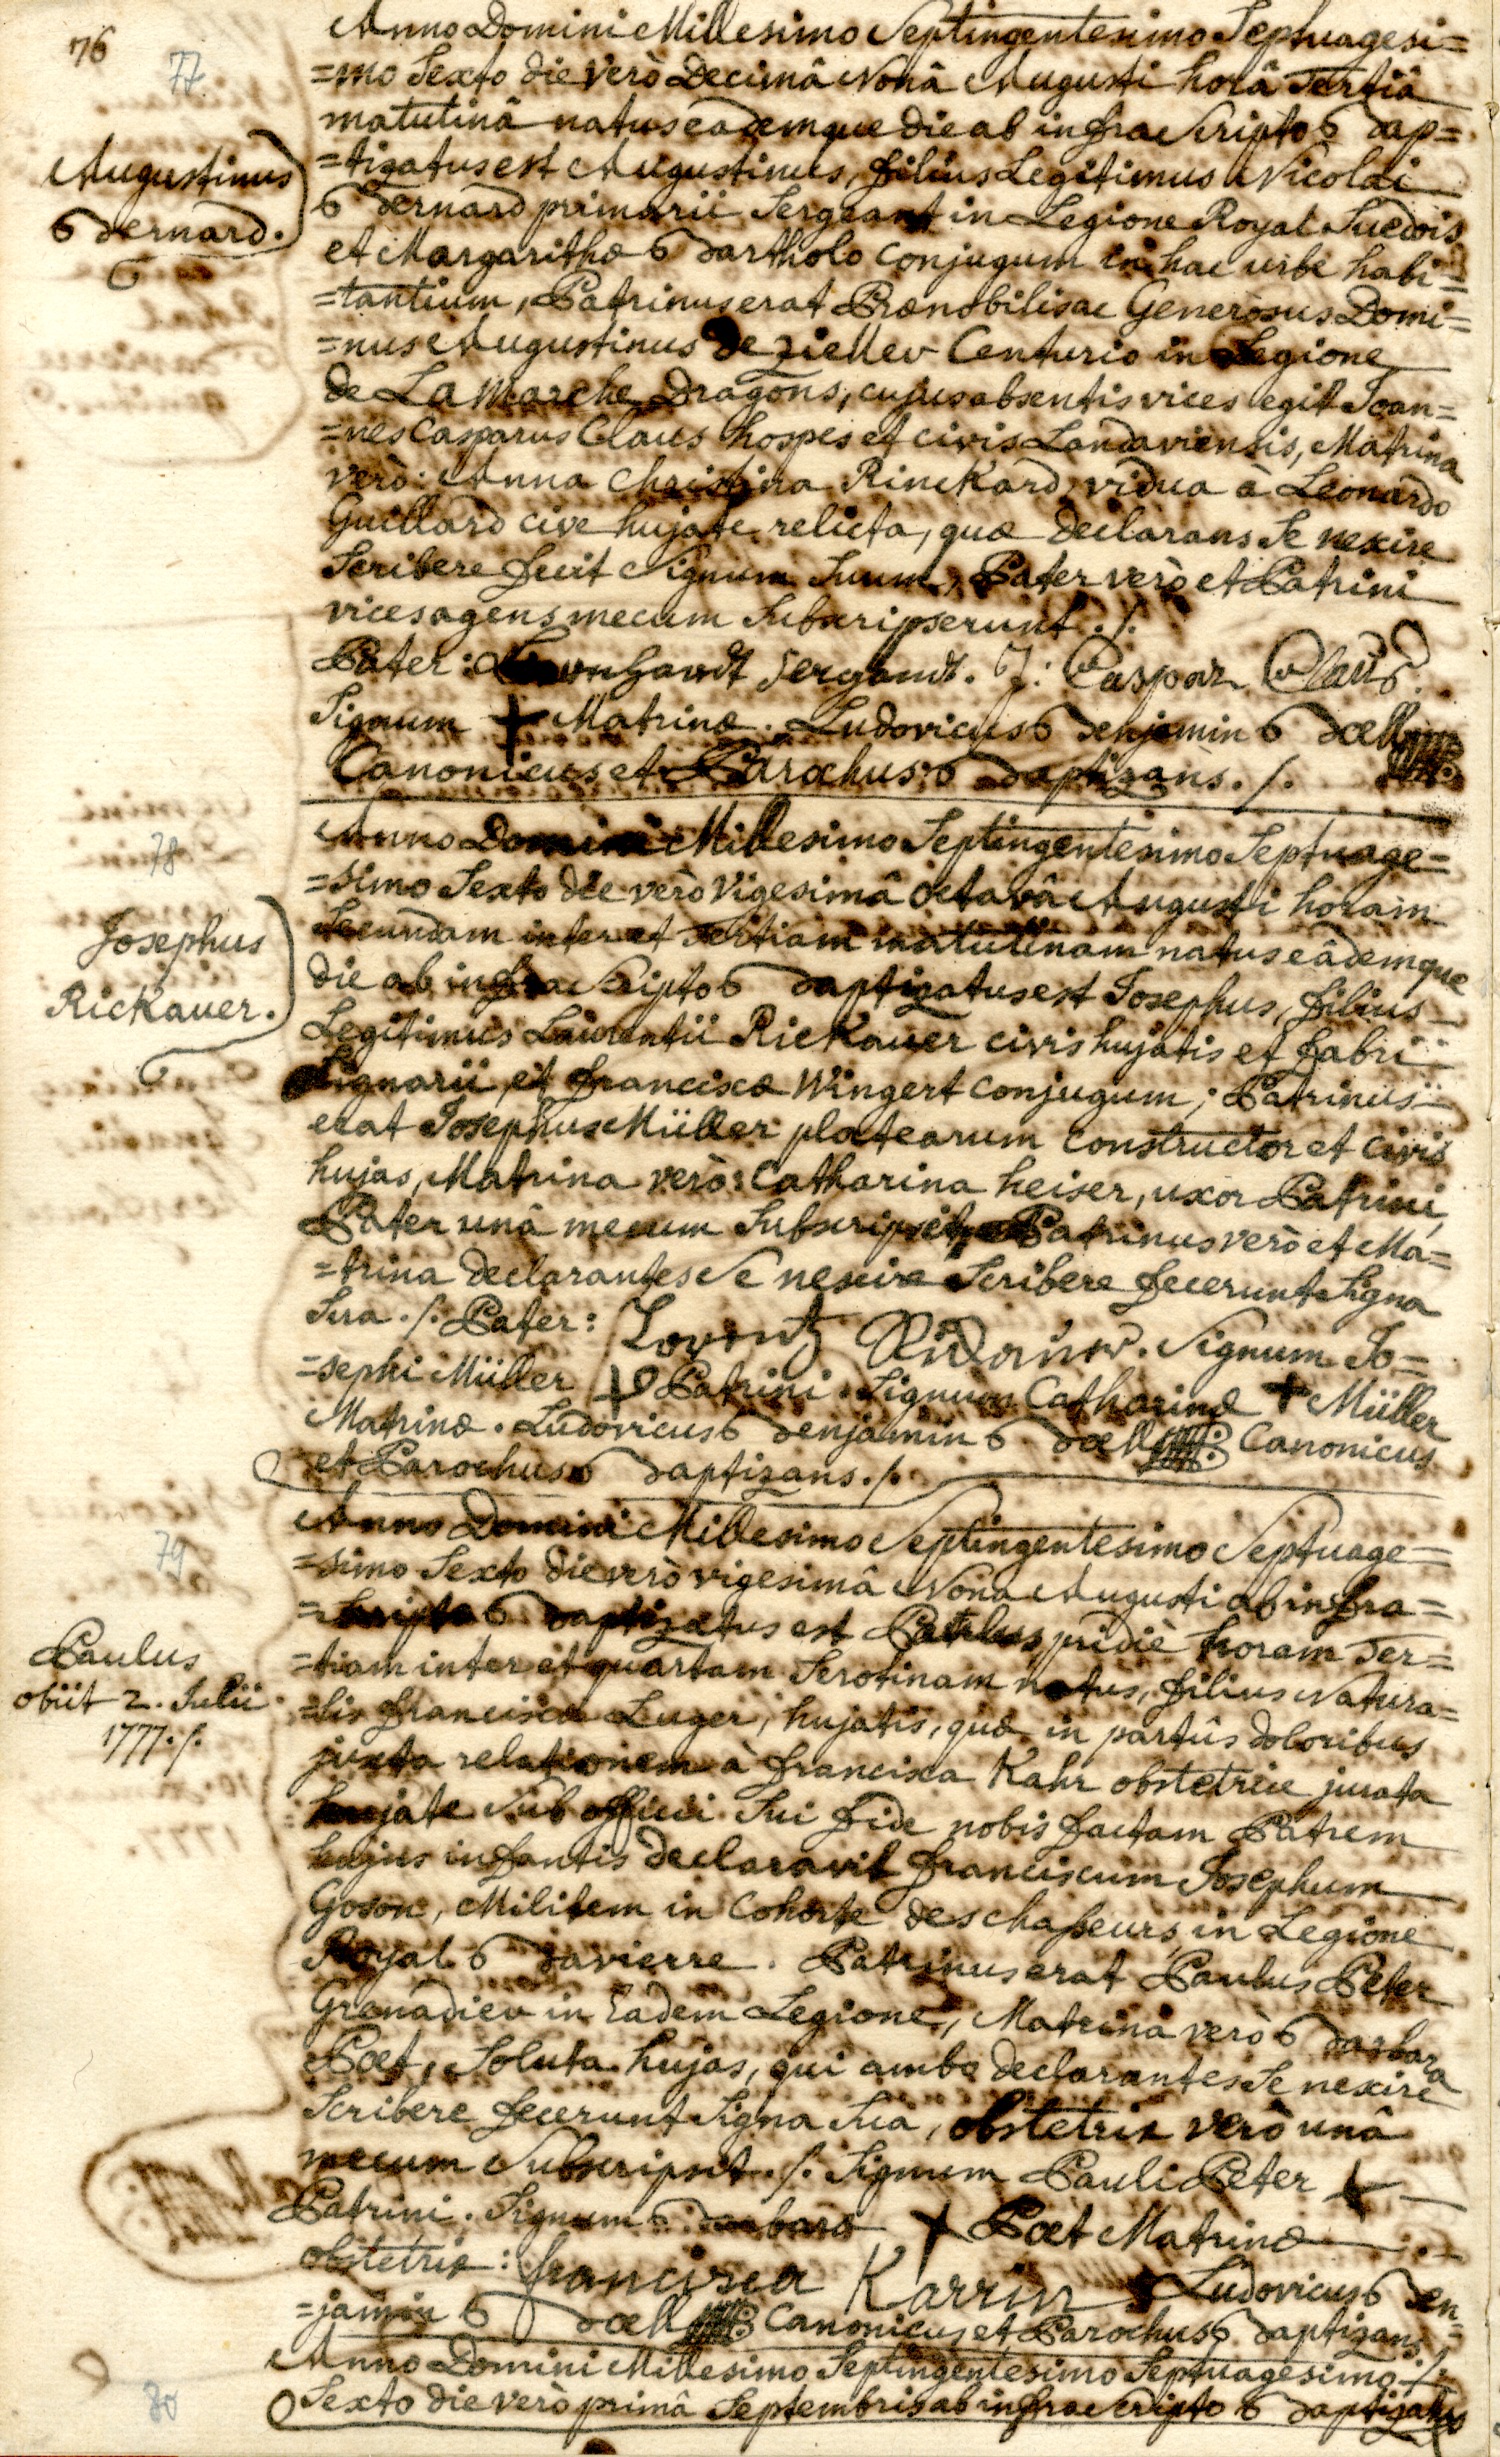 76
77.
Anno Domini Millesimo Septingentesimo Septuagesi=
=mo Sexto die verò Decimâ Nonâ Augusti horâ Tertiâ
matutinâ natus eademque die ab infra Scripto Bap=
=tizatus est Augustinus, filius Legitimus Nicolai
Augustinus
Bernard.
Bernard primarii Sergeant in Legione Royal Suedois
et Margarithæ Bartholo conjugum in hac urbe habi=
=tantium, Patrinus erat Prænobilis ac Generosus Domi=
=nus Augustinus de Centurio in Legione
de La Marche Dragons, cujus absentis vices egit Joan=
=nes Casparus Claus hospes et civis Landaviensis, Matrina
verò: Anna Christina Rinckard vidua à Leonardo
Guillard cive hujate relicta, quæ declarans Se nescire
Scribere fecit Signum Suum, Pater verò et Patrini
vices agens mecum Subscripserunt ./.
Pater: Sergandt. J: Caspar Claus.
Signum + Matrinæ. Ludovicus Benjamin Bœll
Canonicus et Parochus Baptizans ./.
78
Anno Domini Millesimo Septingentesimo Septuage=
=simo Sexto die verò Vigesimâ Octavâ Augusti horam
Secundam inter et Tertiam matutinam natus eâdemque
die ab infra Scripto Baptizatus est Josephus, filius
Josephus
Rickauer.
Legitimus Laurentii Rickauer civis hujatis et fabri
Lignarii et franciscæ Wingert conjugum; Patrinus
erat Josephus Müller platearum constructor et civis
hujas, Matrina verò: Catharina heiser, uxor Patrini,
Pater unâ mecum Subscripsit, Patrinus verò et Ma=
=trina declarantes Se nescire Scribere fecerunt Signa
Sua ./. Pater: Lorentz Signum Jo=
=sephi Müller + Patrini. Signum Catharinæ + Müller
Matrinæ. Ludovicus Benjamin Bœll Canonicus
et Parochus Baptizans ./.
79
Anno Domini Millesimo Septingentesimo Septuage=
=simo Sexto die verò vigesimâ Nona Augusti ab infra=
=Scripto Baptizatus est Paulus, pridiè horam Ter=
=tiam inter et quartam Serotinam natus, filius Natura=
Paulus
obiit 2. Julii
1777 ./.
=lis franciscæ Luger, hujatis, quæ in partûs doloribus
juxta relationem à francisca Kahr obstetrice jurata
hujate Sub officii Sui fide nobis factam Patrem
hujus infantis declaravit franciscum Josephum
Goson, Militem in Cohorte des chasseurs, in Legione
Royal Bavierre. Patrinus erat Paulus Peter
Grenadier in Eadem Legione, Matrina verò Barbara
Poet, Soluta hujas, qui ambo declarantes Se nescire
Scribere fecerunt Signa Sua, obstetrix verò unâ
mecum Subscripsit ./. Signum Pauli Peter +
Patrini. Signum Barbaræ + Poet Matrinæ
obstetrix: francisca Karrin Ludovicus Ben=
=jamin Bœll Canonicus et Parochus Baptizans ./.
80
Anno Domini Millesimo Septingentesimo Septuagesimo
Sexto die verò primâ Septembris ab infra Scripto Baptizatus